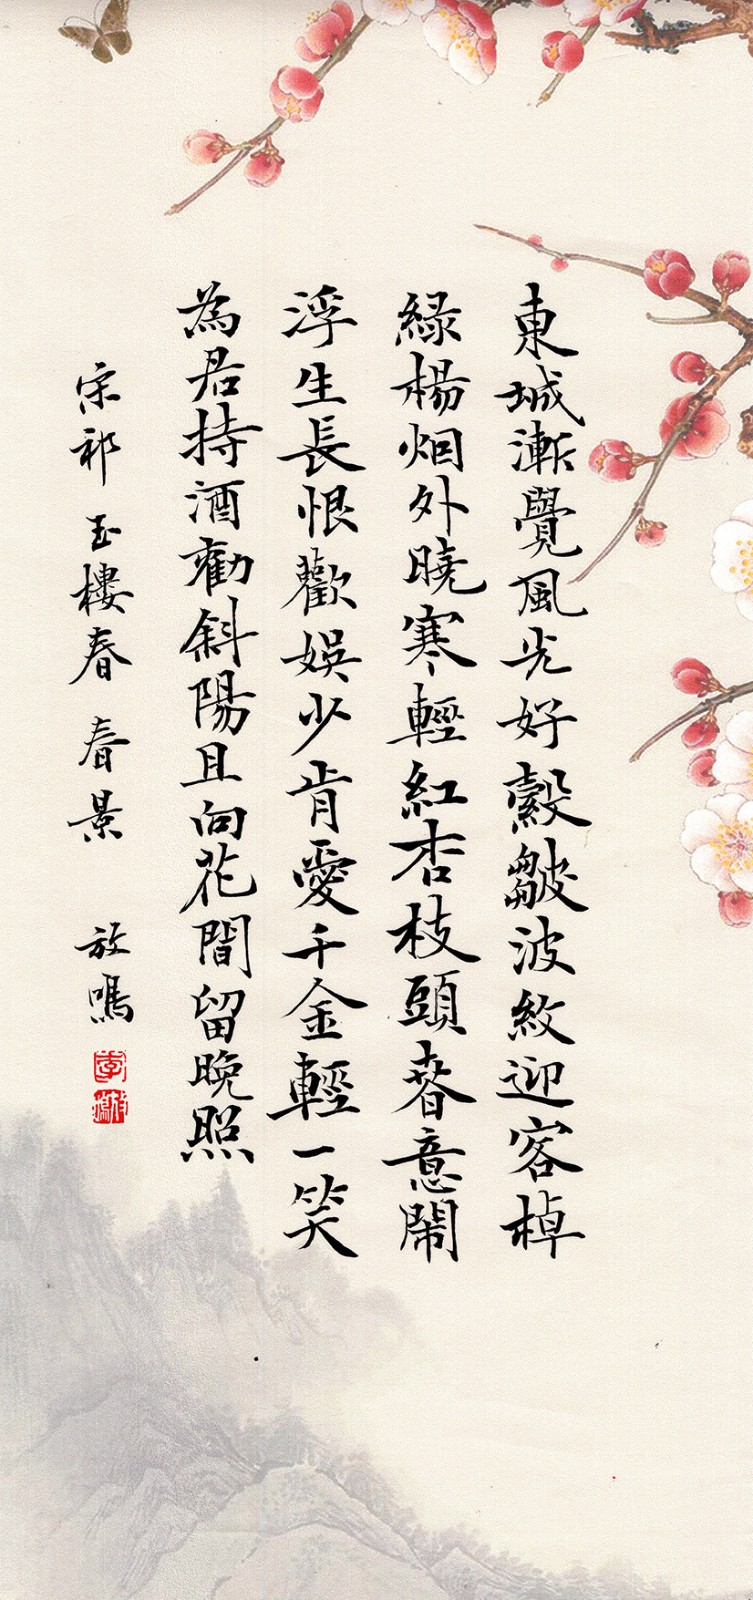 東城漸覺風光好縠皺波紋迎客棹
緑楊烟外曉寒輕紅杏枝頭春意鬧
浮生長恨歡娛少肯愛千金輕一笑
為君持酒勸斜陽且向花間留晚照
宋祁 玉樓春 春景 放鳴